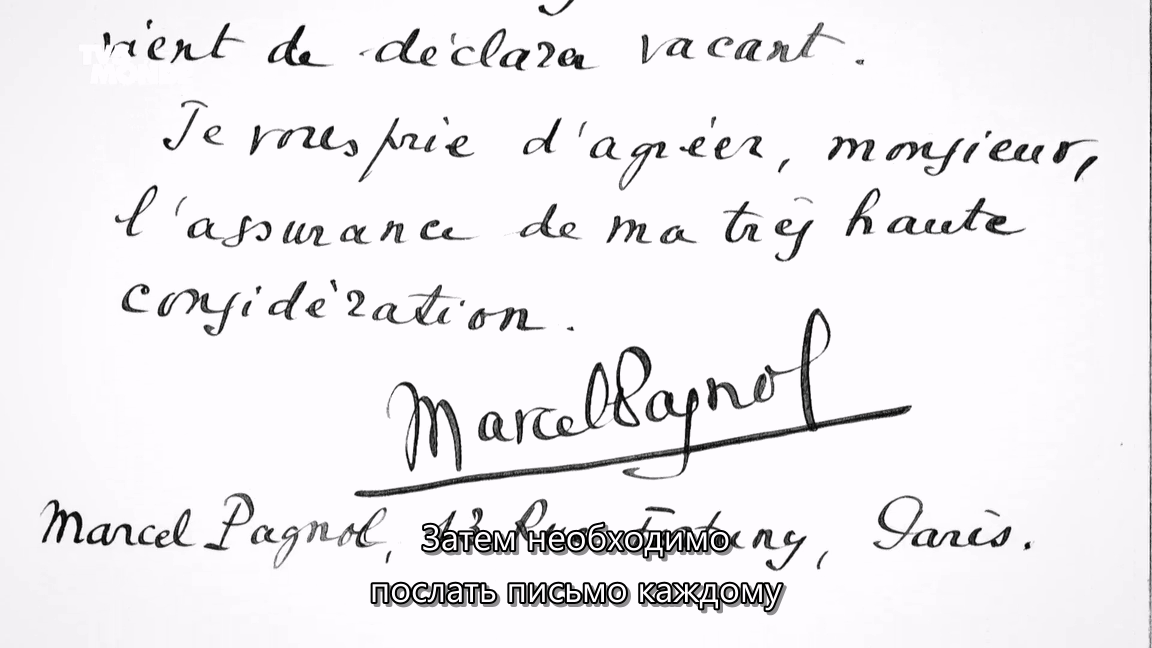 TV5
MONDE
vient de déclarer vacant.
Je vous prie d'agréer, monsieur,
l'assurance de ma très haute
considération.
Marcel Pagnol
Marcel Pagnol, 13 Rue Fortuny, Paris.
Затем необходимо
послать письмо каждому